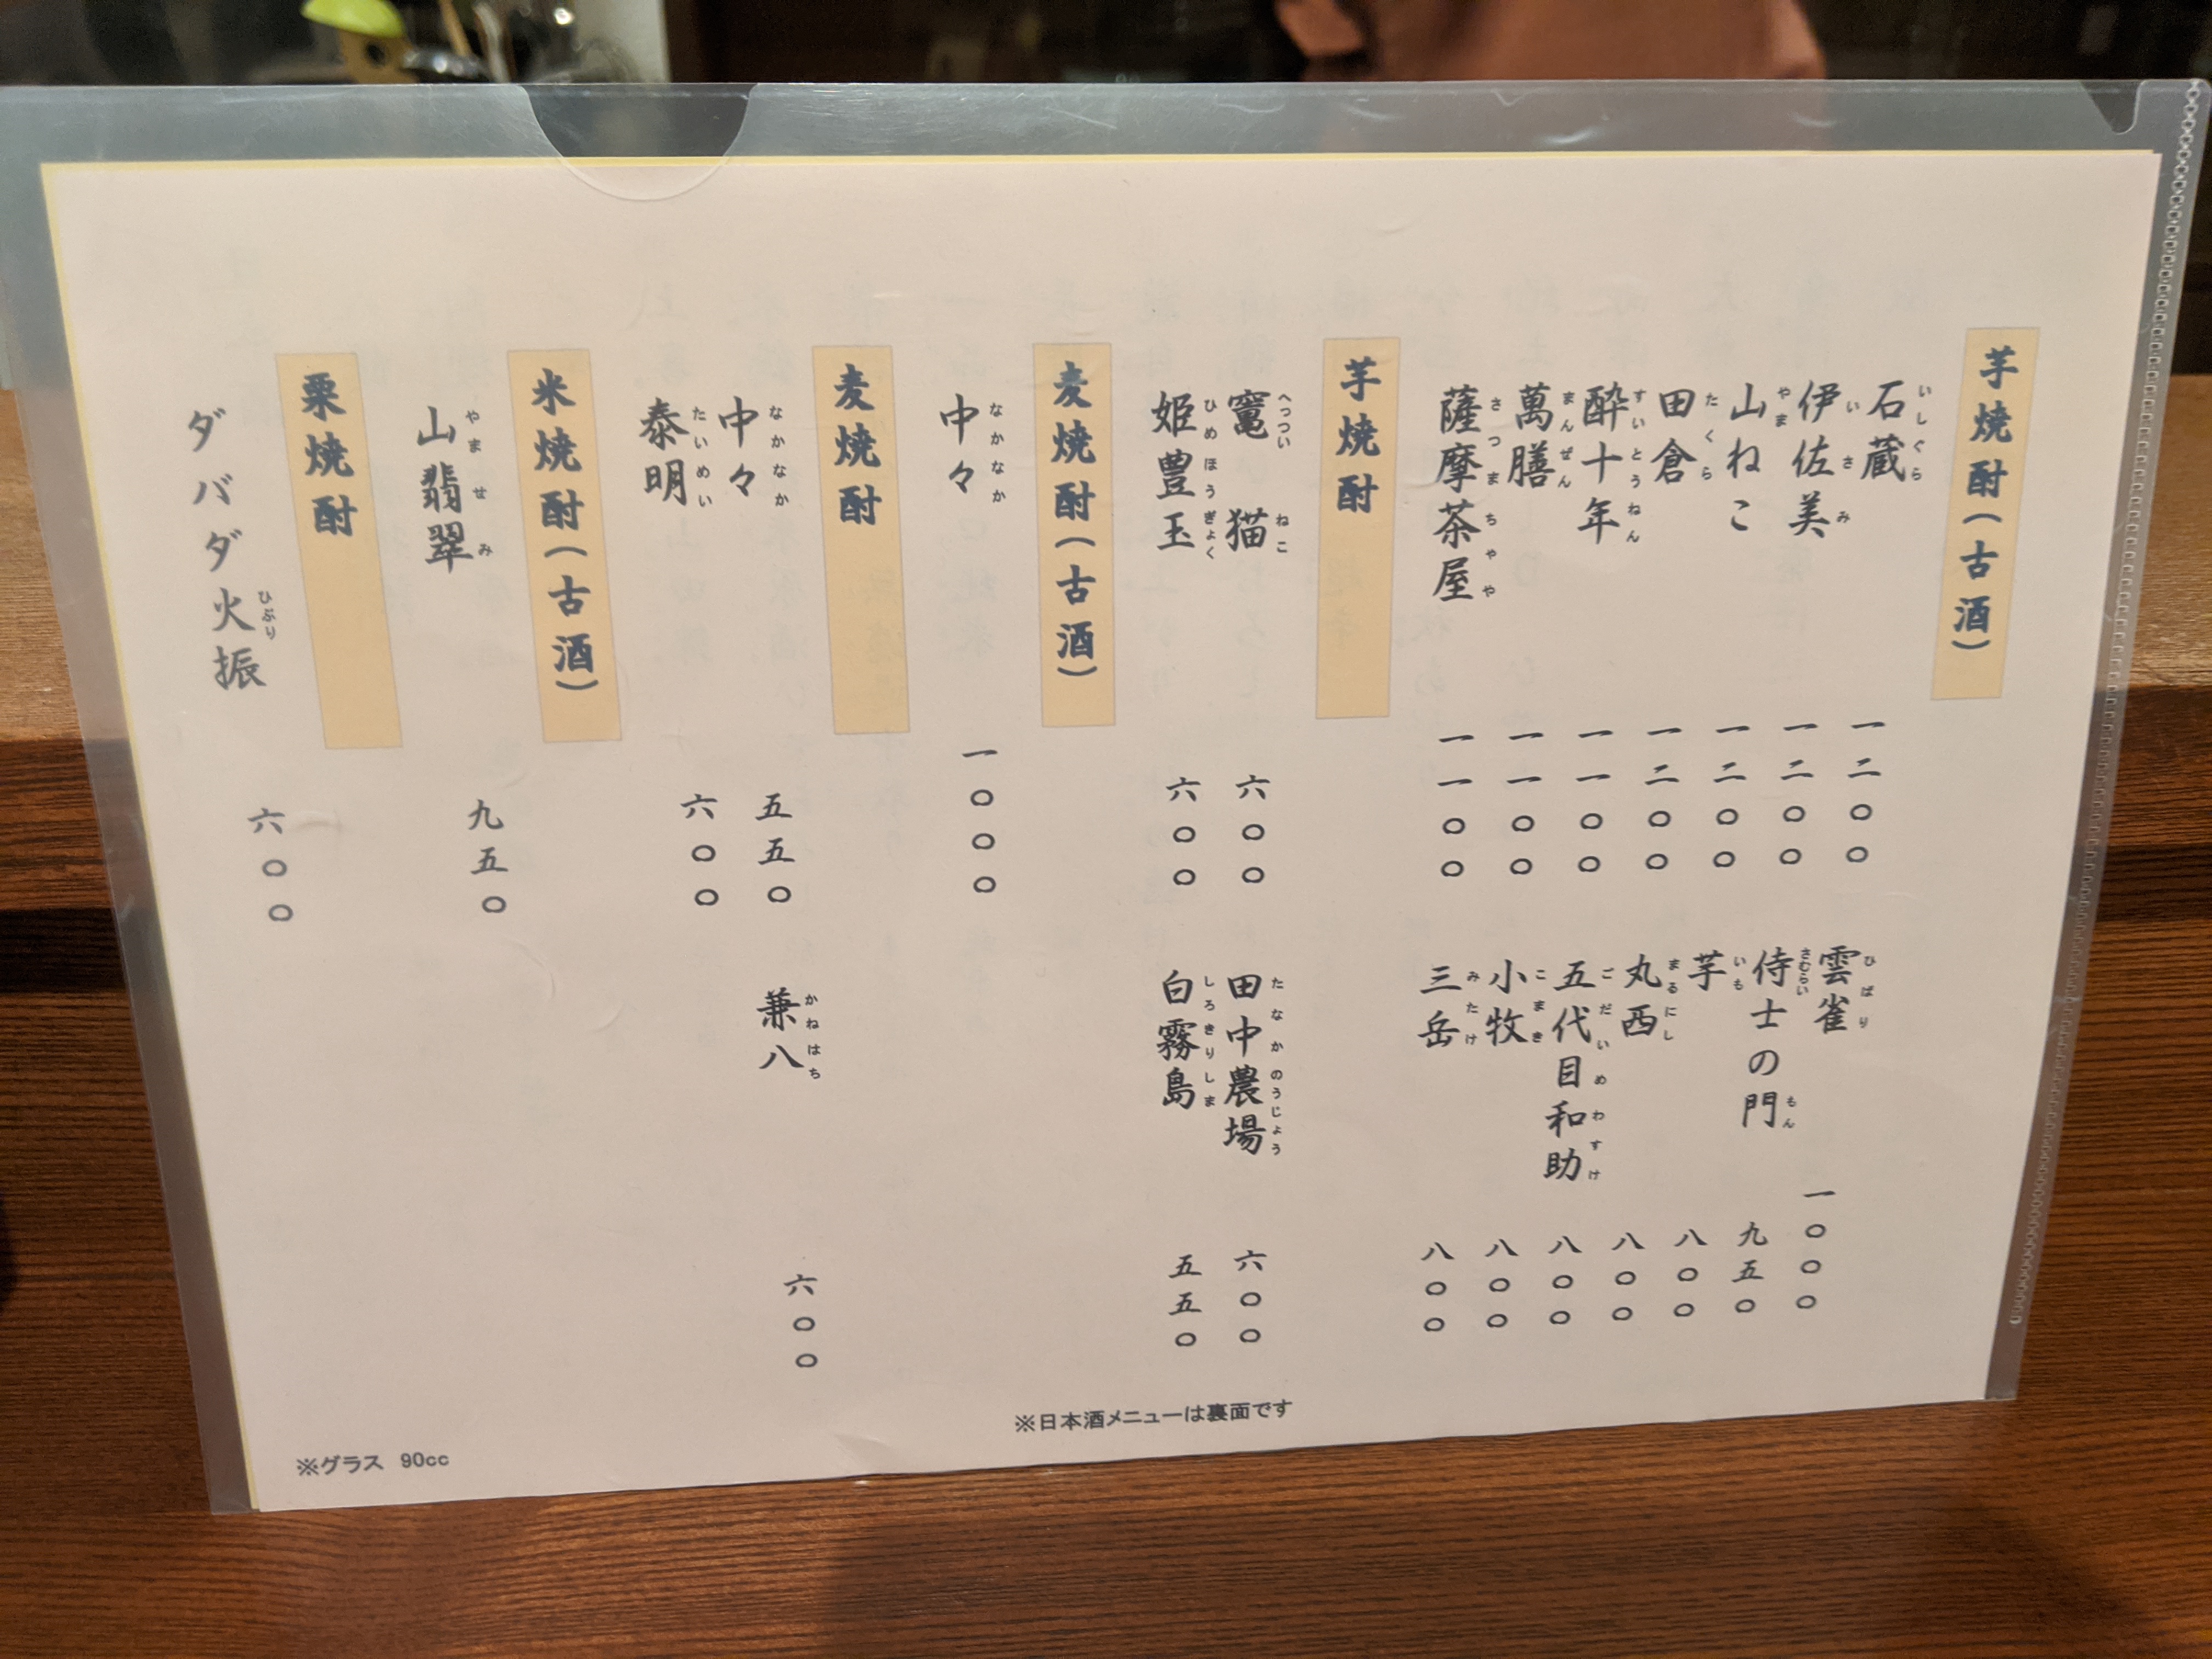 芋焼酎(古酒)
石蔵 いしぐら 一二〇〇
伊佐美 いさみ 一二〇〇
山ねこ やま 一二〇〇
田倉 たくら 一二〇〇
酔十年 すいとうねん 一一〇〇
萬膳 まんぜん 一一〇〇
薩摩茶屋 さつまちゃや 一一〇〇
雲雀 ひばり 一〇〇〇
侍士の門 さむらい もん 九五〇
芋 いも 八〇〇
丸西 まるにし 八〇〇
五代目和助 ごだいめわすけ 八〇〇
小牧 こまき 八〇〇
三岳 みたけ 八〇〇
芋焼酎
竃猫 へっついねこ 六〇〇
姫豊玉 ひめほうぎょく 六〇〇
田中農場 たなかのうじょう 六〇〇
白霧島 しろきりしま 五五〇
麦焼酎(古酒)
中々 なかなか 一〇〇〇
麦焼酎
中々 なかなか 五五〇
泰明 たいめい 六〇〇
兼八 かねはち 六〇〇
米焼酎(古酒)
山翡翠 やませみ 九五〇
栗焼酎
ダバダ火振 ひぶり 六〇〇
※日本酒メニューは裏面です
※グラス 90cc